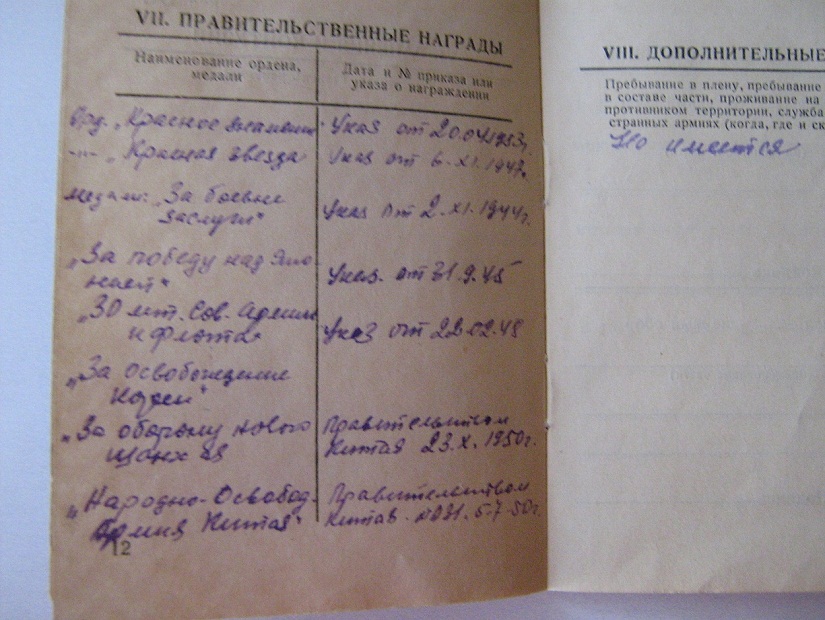 VII. ПРАВИТЕЛЬСТВЕННЫЕ НАГРАДЫ
Наименование ордена, медали
Дата и № приказа или указа о награждении
Орд. „Красное знамение" Указ от 20.04.1953г.
-"- „Красная звезда Указ от 6.XI.1947г.
медали: „За боевые
заслуги" Указ от 2.XI.1944г.
„За победу над Япо-
нией" Указ. от 31.9.45
„30 лет. Сов. Армии
и флота" Указ от 22.02.48
„За освобождение
Кореи"
„За оборону нового Правительством
Шанхая Китая 23.X.1950г.
„Народно-Освобод. Правительством
Армия Китая" Китая. №031. 5.7.50г.
12
VIII. ДОПОЛНИТЕЛЬНЫЕ
Пребывание в плену, пребывание
в составе части, проживание на
противником территории, служба
странных армиях (когда, где и
Не имеется